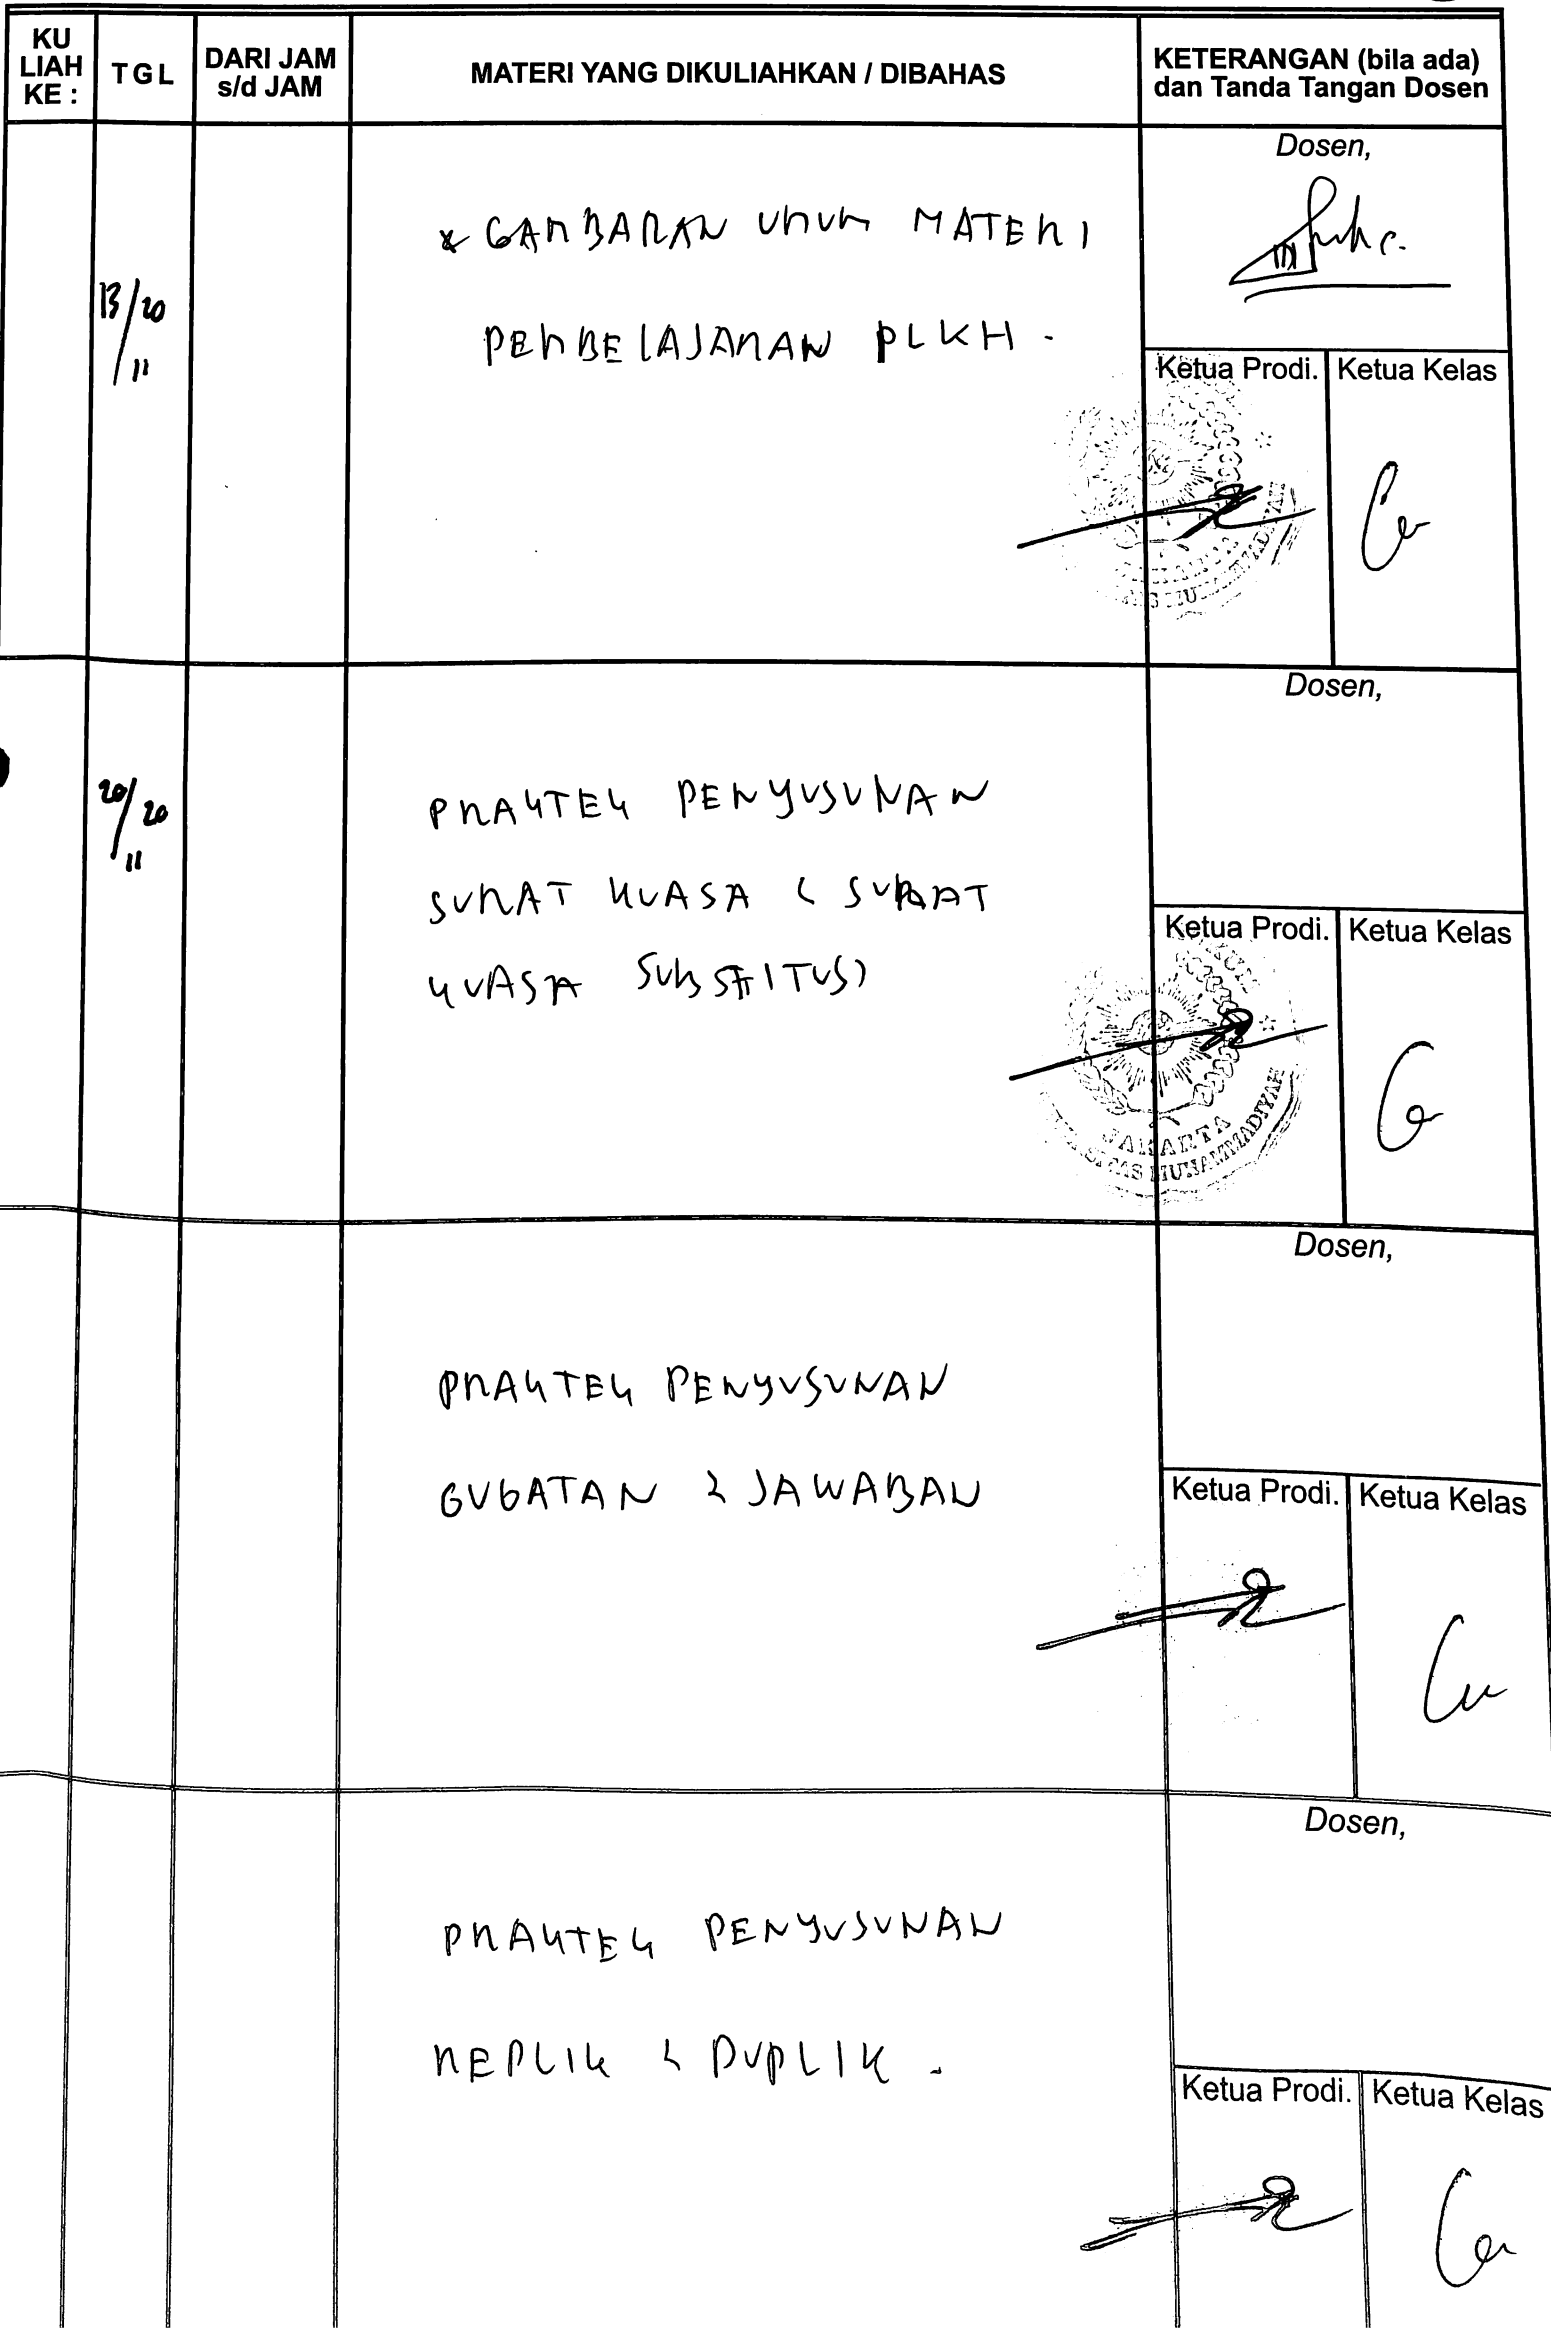 KU
LIAH
KE :
TGL
DARI JAM
s/d JAM
MATERI YANG DIKULIAHKAN / DIBAHAS
KETERANGAN (bila ada)
dan Tanda Tangan Dosen
Dosen,
13/20
11
* GAMBARAN UMUM MATERI
PEMBELAJARAN PLKH .
Ketua Prodi.
Ketua Kelas
Dosen,
20/20
11
PRAKTEK PENYUSUNAN
SURAT KUASA & SURAT
KUASA SUBSTITUSI
Ketua Prodi.
Ketua Kelas
JAKARTA
MUHAMMADIYAH
Dosen,
PRAKTEK PENYUSUNAN
GUGATAN & JAWABAN
Ketua Prodi.
Ketua Kelas
Dosen,
PRAKTEK PENYUSUNAN
REPLIK & DUPLIK .
Ketua Prodi.
Ketua Kelas